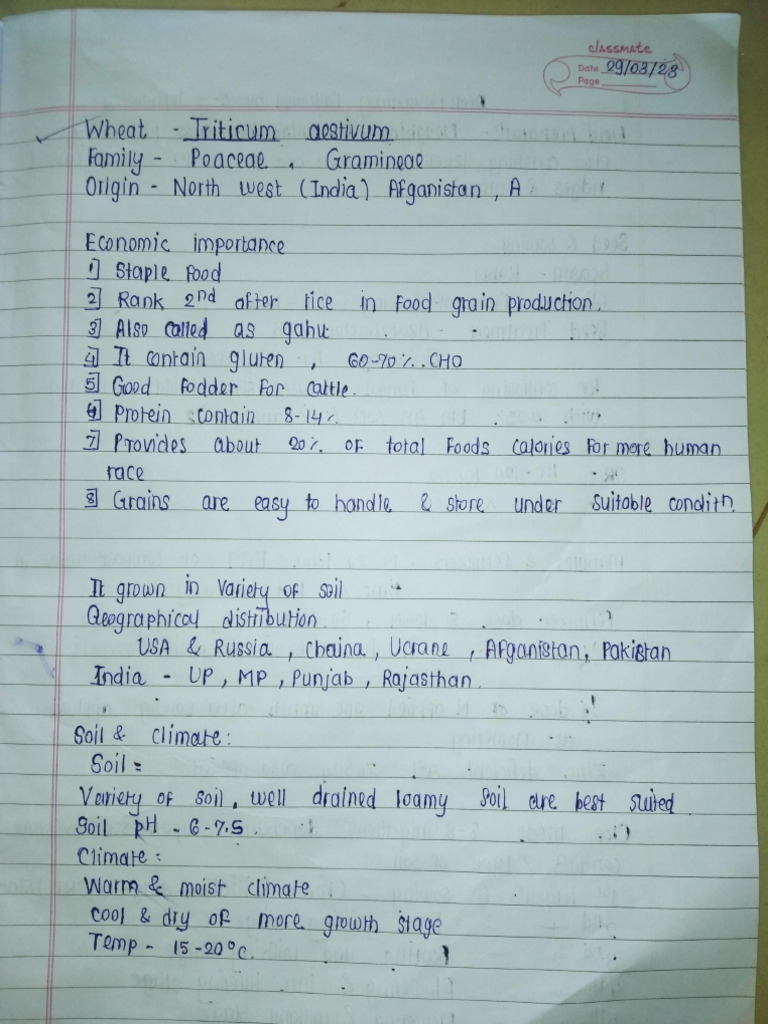 classmate
Date 29/03/23
Page
Wheat - Triticum aestivum
Family - Poaceae , Gramineae
Origin - North West (India) Afganistan , A
Economic importance
1] Staple food
2] Rank 2nd after rice in food grain production.
3] Also called as gahu
4] It contain gluten , 60-70% CHO
5] Good fodder for cattle.
6] Protein contain 8-14%
7] Provides about 20% of total foods calories for more human
race
8] Grains are easy to handle & store under suitable conditn.
It grown in variety of soil
Geographical distribution
USA & Russia , Chaina , Ucrane , Afganistan, Pakistan
India - UP , MP , Punjab , Rajasthan.
Soil & climate :
Soil =
Variety of soil , well drained loamy soil are best suited
Soil pH - 6-7.5 .
Climate :
Warm & moist climate
cool & dry of more growth stage
Temp - 15-20°c.